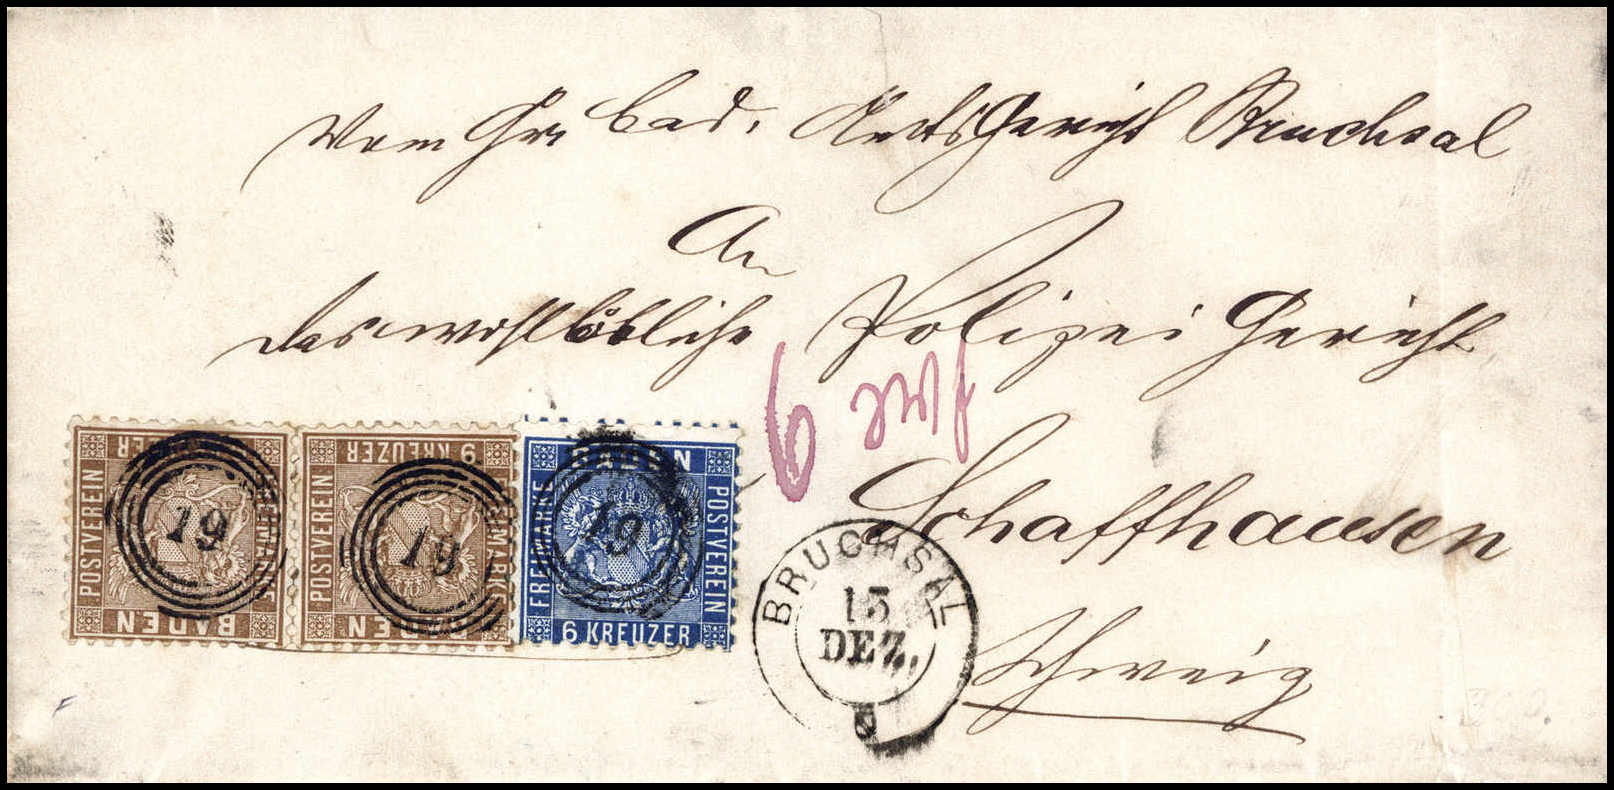 Vom Gr. bad. Amtsgericht Bruchsal
An
das wohllöbliche Polizei Gericht
6 Wf
Schaffhausen
Schweiz
POSTVEREIN FREIMARKE BADEN
19
9 KREUZER POSTVEREIN FREIMARKE BADEN
19
BADEN FREIMARKE POSTVEREIN 6 KREUZER
19
BRUCHSAL
15
DEZ.